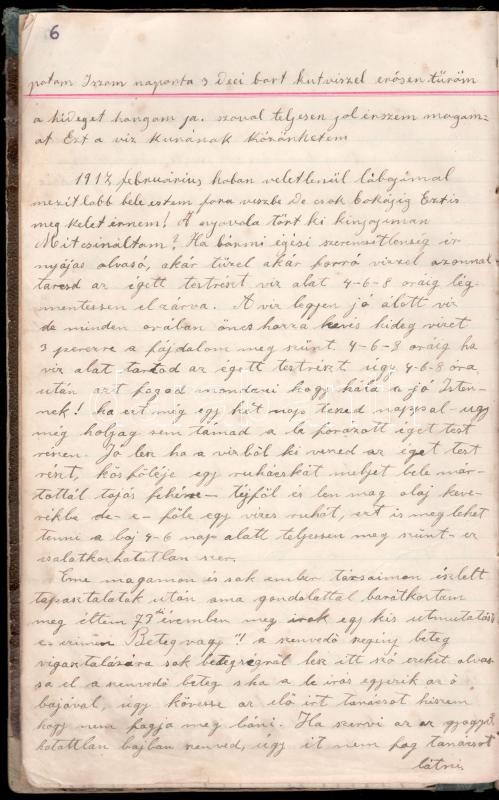 6
potom Iszom naponta 3 deci bort kutviszel erősen türöm
a hideget hangom ja. szoval teljesen jol érszem magam=
at Ezt a viz kurának köszönhetem
1917 februárius hoban veletlenül lábaimal
mezitlább bele estem fora vizbe De csak bokájig Eztis
meg kelet érnem! A nyavola tört ki kinjaiman
Mit csináltam? Ha bármi égési szerencsétlenség ér
nyájas olvasó, akár tüzel akár forró vizzel azonnal
tarcsd az égett testrészt viz alat 4-6-8 oráig lég-
mentessen elzárva. A viz legyen jó álott viz
de minden orában öncs hozza kevés hideg vizet
3 percre a fájdalom meg szünt 4-6-8 oráig ha
viz alat tartod az égett testrészt úgy 4-6-8 óra
után azt fogod mondani hogy hála a jó Iste-
nek! ha ezt még egy két nap teszed nappal - ugy
még hojag sem támad a le forázott éget test
részen. Jó lesz ha a vizböl ki veszed az éget test
részt, kös föléje egy ruhácskát meljet bele már-
tottál tojás fehére - tejföl és len mag olaj keve-
rékbe de - e - föle egy vizes ruhát, ezt is meg lehet
tenni a baj 4-6 nap alatt teljesen meg szünt - ez
csalatkozhatatlan szer.
Eme magamon és sok ember társaimon észlelt
tapasztalatok után ama gondolattal barátkoztam
meg éltem 73 évemben meg irok egy kis utmutatást
e cimen Beteg vagy"! a szenvedő szegény beteg
vigasztalására sok betegségröl lesz itt szó ezeket olvas-
sa el a szenvedő beteg s ha a le irás egyezik az ő
bajával, úgy kövesse az elő irt tanácsot hiszem
hogy nem fogja meg báni. Ha szervi az az gyogyit
hatattlan bajban szenved, úgy it nem fog tanácsot
látni